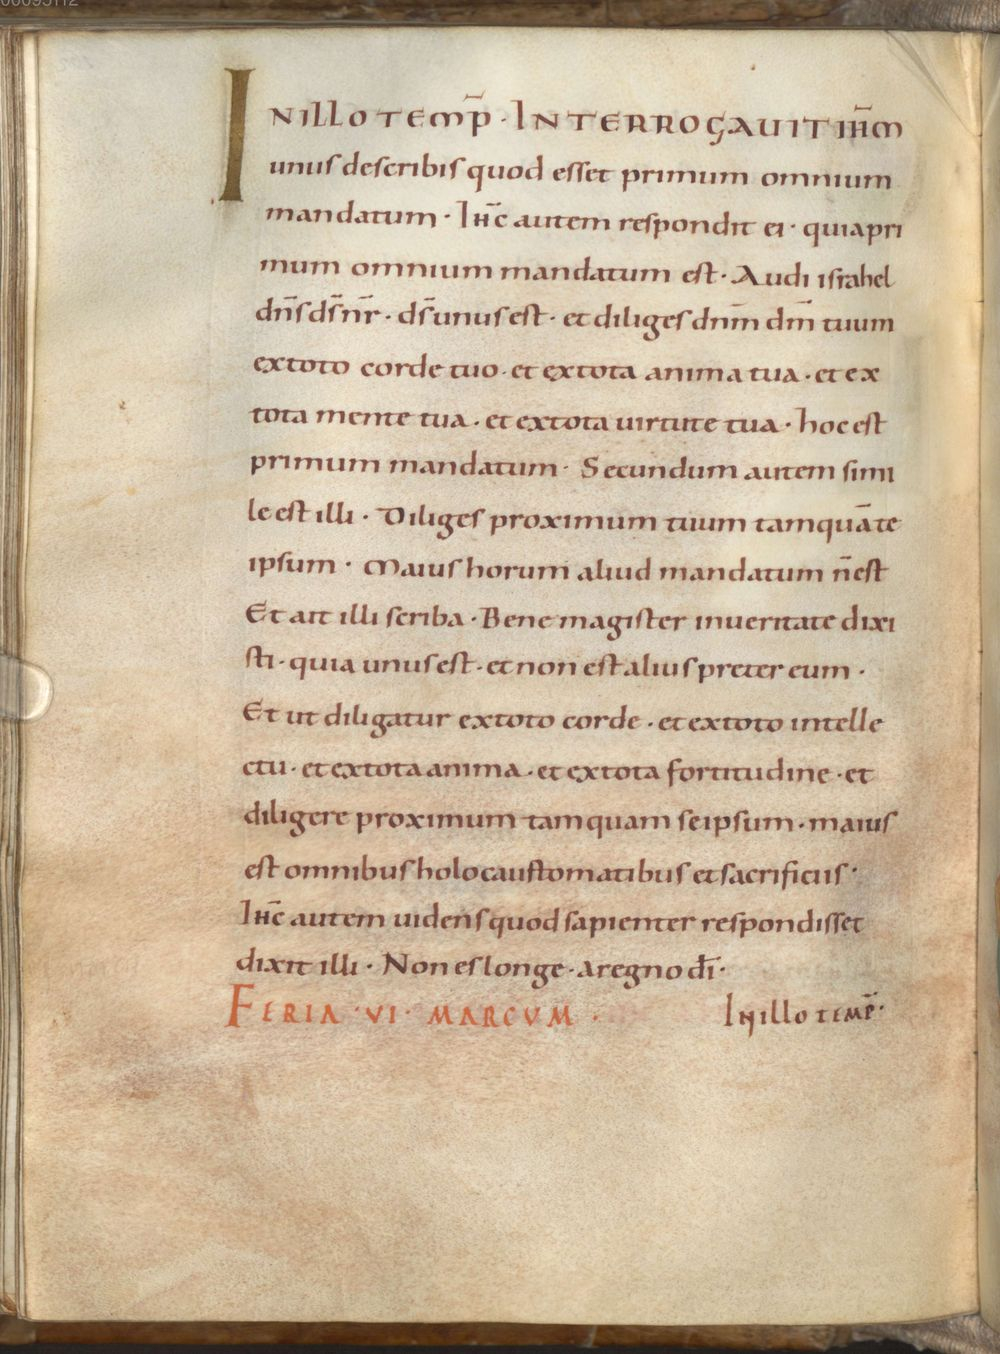 IN ILLO TEMP̄ · INTERROGAUIT IH̄M
unus describis quod esset primum omnium
mandatum · Ih̄c autem respondit ei · quia pri
mum omnium mandatum est · Audi israhel
dn̄s ds̄ nr̄ · ds̄ unus est · et diliges dnm̄ dm̄ tuum
ex toto corde tuo · et ex tota anima tua · et ex
tota mente tua · et ex tota uirtute tua · hoc est
primum mandatum · Secundum autem simi
le est illi · Diliges proximum tuum tamquā te
ipsum · Maius horum aliud mandatum n̄ est
Et ait illi scriba · Bene magister in ueritate dixi
sti · quia unus est · et non est alius preter eum ·
Et ut diligatur ex toto corde · et ex toto intelle
ctu · et ex tota anima · et ex tota fortitudine · et
diligere proximum tamquam se ipsum · maius
est omnibus holocaustomatibus et sacrificiis ·
Ih̄c autem uidens quod sapienter respondisset
dixit illi · Non es longe · a regno dī ·
FERIA · VI · MARCUM · In illo temp̄ ·